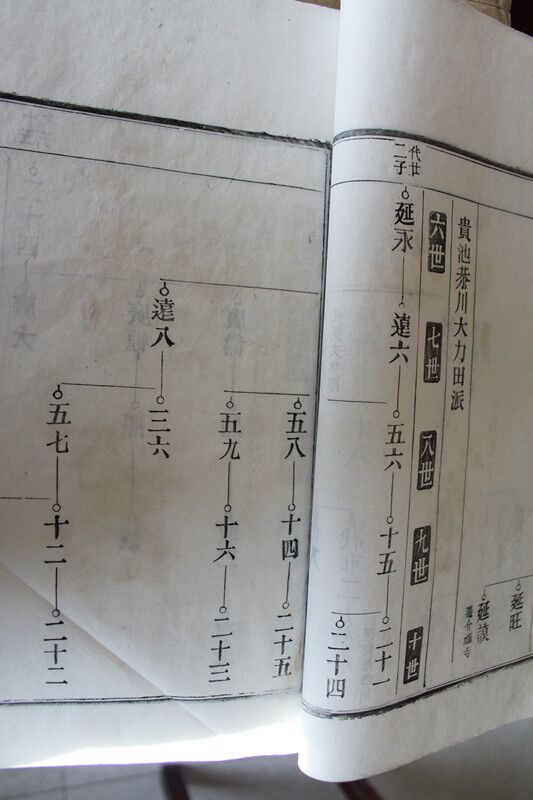 延旺
延謨
貴池恭川大力田派
六世
七世
八世
九世
十世
代廿
二子
延永
遠六
五六
十五
二十一
二十四
五八
十四
二十五
五九
十六
二十三
遠八
三六
五七
十二
二十二